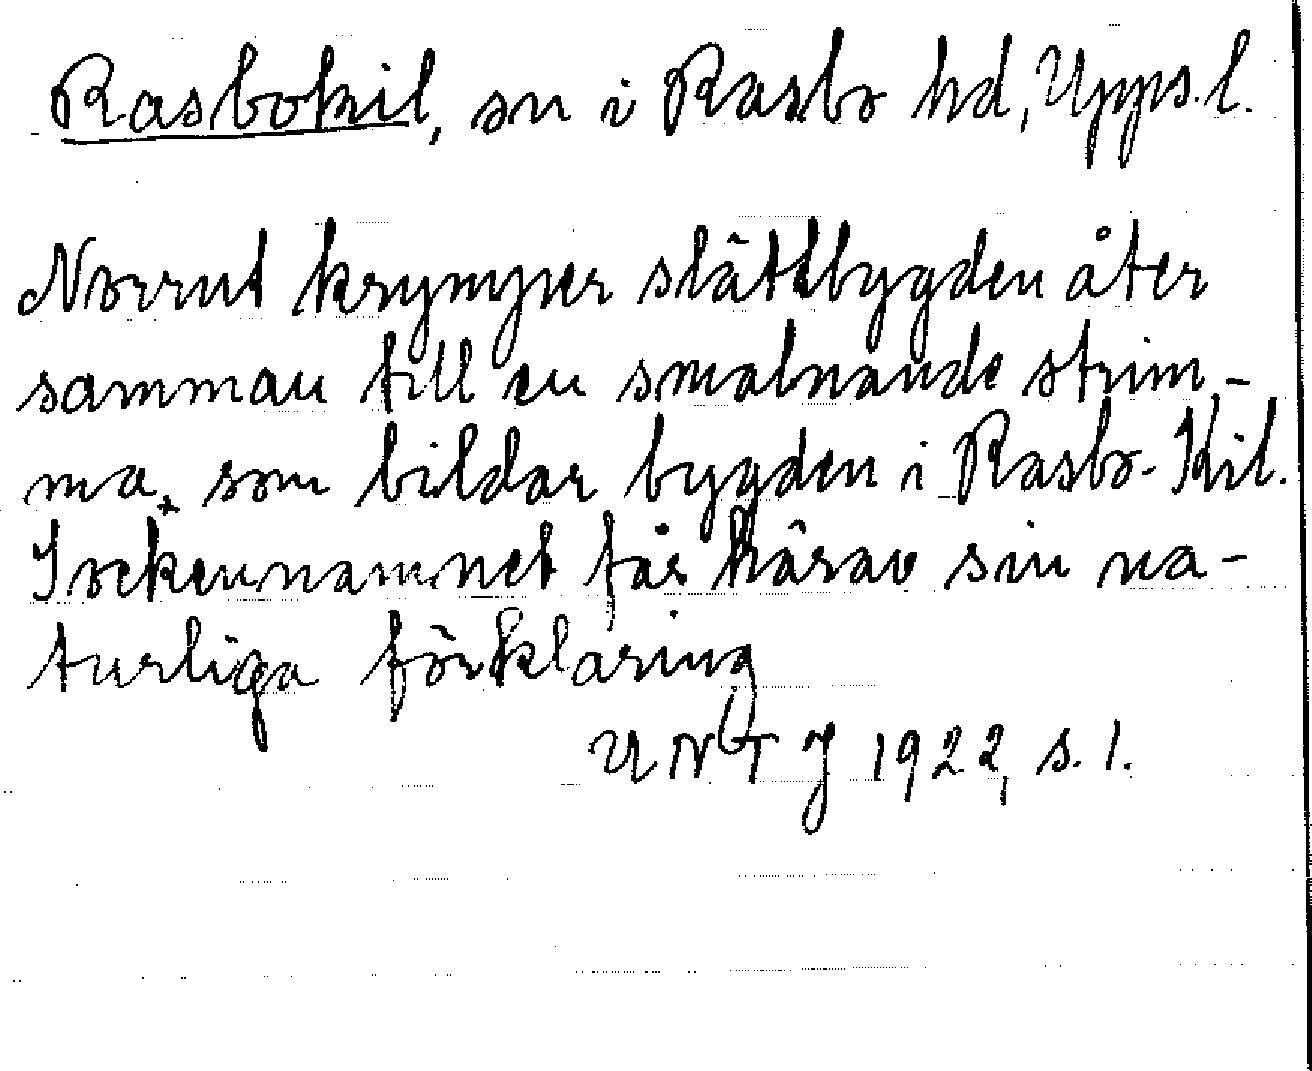 Rasbokil, sn i Rasbo hd, Uppl.
Norrut krymper slättbygden åter
samman till en smalnande strim-
ma, som bildar bygden i Rasbo-Kil.
Sockennamnet får härav sin na-
turliga förklaring
UNT J 1922, s. 1.